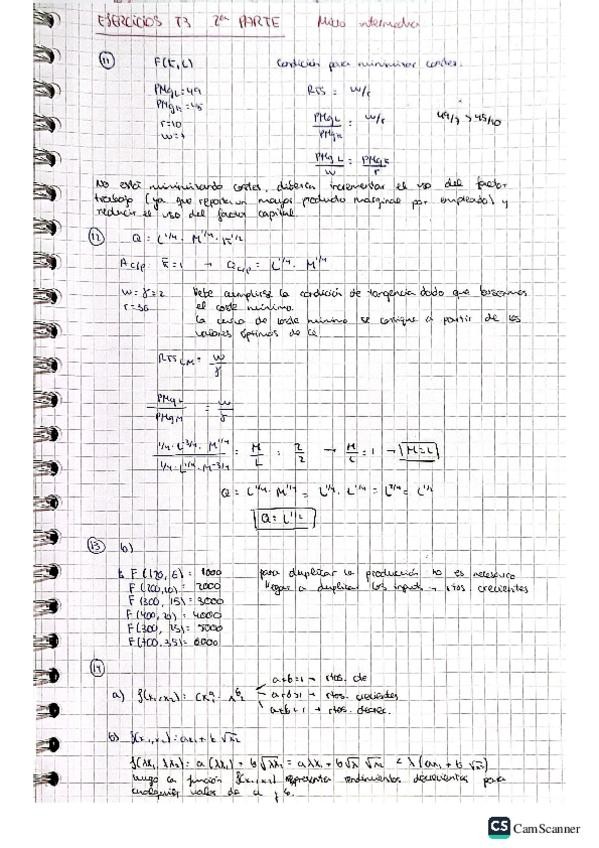 EJERCICIOS T3 2ª PARTE Micro intermedia
11 F(K,L) Condición para minimizar costes.
PMgL=49 RTS = w/r
PMgK=45
r=10 PMgL/PMgK = w/r 49/7 > 45/10
w=7
PMgL/w = PMgK/r
No está minimizando costes, deberían incrementar el uso del factor
trabajo (ya que reporta un mayor producto marginal por empleado) y
reducir el uso del factor capital.
12 Q = L^1/4 · M^1/4 · K^1/2
A c/p K=1 → Qc/p = L^1/4 · M^1/4
w = γ = 2 Debe cumplirse la condición de tangencia dado que buscamos
el coste mínimo.
La curva de coste mínimo se consigue a partir de los
valores óptimos de
RTS LM = w/γ
PMgL/PMgM = w/γ
1/4·L^-3/4·M^1/4 / 1/4·L^1/4·M^-3/4 = M/L = 2/2 → M/L = 1 → M=L
Q = L^1/4 · M^1/4 = L^1/4 · L^1/4 = = L^1/2
Q = L^1/2
13 b)
F(120, 6) = 1000 para duplicar la producción no es necesario
F(200,10) = 2000 llegar a duplicar los inputs → rtos crecientes
F(300, 15) = 3000
F(400, 20) = 4000
F(500, 25) = 5000
F(700, 35) = 6000
14
a+b=1 → rtos. de
a) f(x1,x2) = Cx1^a · x2^b a+b>1 → rtos. crecientes
a+b<1 → rtos. decrec.
b) f(x1,x2) = ax1 + b√x2
f(λx1, λx2) = a(λx1) + b√λx2 = aλx1 + b√λ √x2 < λ(ax1 + b√x2)
luego la función f(x1,x2) representa rendimientos decrecientes para
cualquier valor de a y b.
CS CamScanner